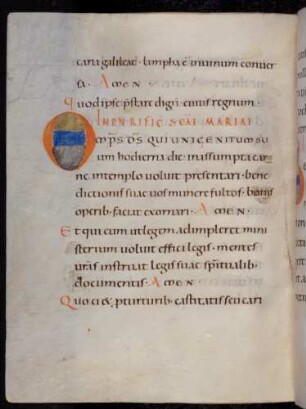 cana galileae · limpha ē in uinum conuer
sa · AMEN ·
Quod ipse p̄stare digń cuius regnum ·
IN PURIFIC SCAE MARIAE
OMPS DS QUI UNIGENITUM SU
um hodierna die in assumpta car
ne in templo uoluit presentari · bene
dictionis suae uos munere fultos · bonis
operib · faciat exornari · AMEN ·
Et qui eum ut legem adimpleret mini
sterium uoluit effici legis · mentes
uras instruat legis suae spiritalib ·
documentis · AMEN
Quo ei &amp; p turturib castitatis seu cari